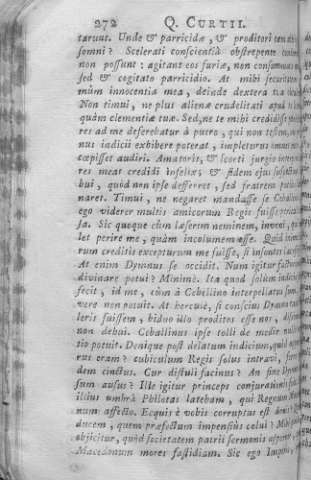 272 Q. CURTII.
taruut. Unde & parricidæ, & proditori tam
somni? Scelerati conscientiâ obstrepente
non possunt: agitant eos furiæ, non consummato
sed & cogitato parricidio. At mihi securitatem
mùm innocentia mea, deinde dextera tua
Non timui, ne plus alienæ crudelitati apud te
quàm clementiæ tuæ. Sed, ne te mihi credidisse
res ad me deferebatur à puero, qui non testem,
nus indicii exhibere poterat, impleturus omnes
cœpisset audiri. Amatoris, & scorti jurgio interponi
res meat credidi infelix; & fidem ejus suspectam
bui, quòd non ipse defferret, sed fratrem
naret. Timui, ne negaret mandasse se Ceballino
ego viderer multis amicorum Regis fuisse
sa. Sic quoque cùm læserim neminem, inveni, qui
let perire me, quàm incolumem esse. Quid
rum creditis excepturum me fuisse, si insontes
At enim Dymnus se occidit. Num igitur facturum
divinare potui? Minimè. Ita quod solùm indicio
fecit, id me, cùm à Ceballino interpellatus sum,
vere non potuit. At hercule, si conscius Dymno
leris fuissem, biduo illo proditos esse nos,
non debui. Ceballinus ipse tolli de medio
tio potuit. Denique post delatum indicium, quod
rus eram? cubiculum Regis solus intravi,
dem cinctus. Cur distuli facinus? An sine Dymno
sum ausus? Ille igitur princeps conjurationis
illius umbrâ Philotas latebam, qui Regnum
num affecto. Ecquis è vobis corruptus est
ducem, quem præfectum impensiùs colui? Mihi
objicitur, quòd societatem patrii sermonis
Macedonum mores fastidiam. Sic ego